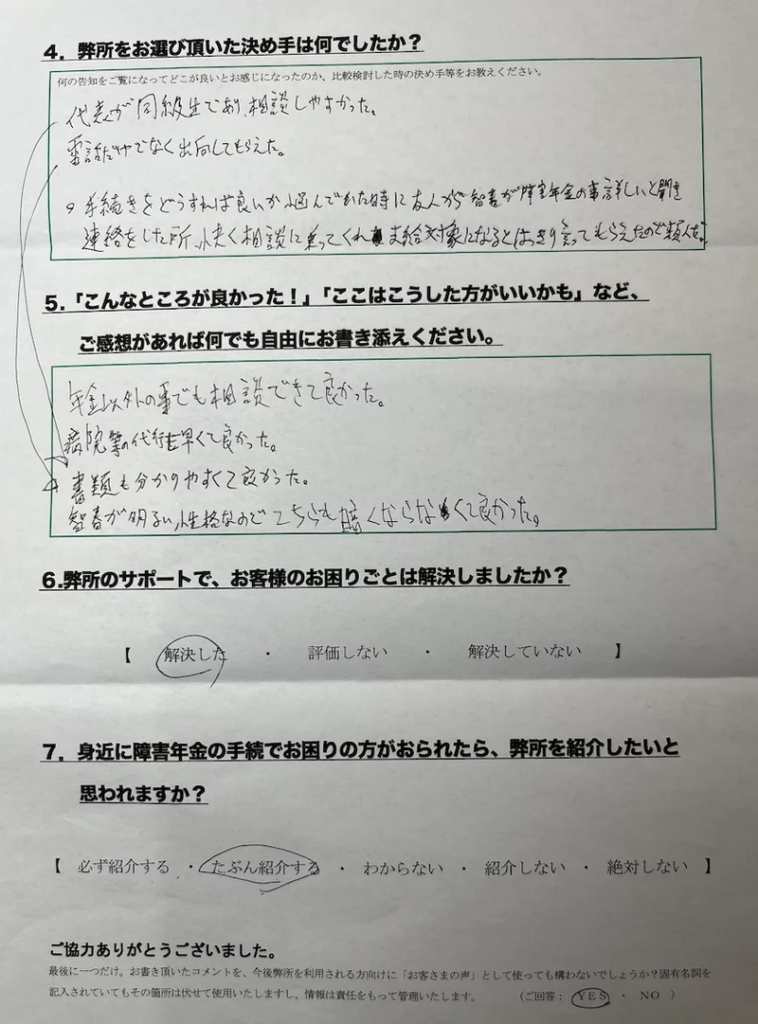 4．弊所をお選び頂いた決め手は何でしたか？
何の告知をご覧になってどこが良いとお感じになったのか、比較検討した時の決め手等をお教えください。
代表が同級生であり、相談しやすかった。
電話だけでなく出向してもらえた。
手続きをどうすれば良いか悩んでいた時に友人から智春が障害年金の事詳しいと聞き
連絡をした所、快く相談に乗ってくれ支給対象になるとはっきり言ってもらえたので頼んだ。
5．「こんなところが良かった！」「ここはこうした方がいいかも」など、
ご感想があれば何でも自由にお書き添えください。
年金以外の事でも相談できて良かった。
病院等の代行も早くて良かった。
書類も分かりやすくて良かった。
智春が明るい性格なのでこちらも暗くならなくて良かった。
6.弊所のサポートで、お客様のお困りごとは解決しましたか？
【 解決した ・ 評価しない ・ 解決していない 】
7．身近に障害年金の手続でお困りの方がおられたら、弊所を紹介したいと
思われますか？
【 必ず紹介する ・ たぶん紹介する ・ わからない ・ 紹介しない ・ 絶対しない 】
ご協力ありがとうございました。
最後に一つだけ。お書き頂いたコメントを、今後弊所を利用される方向けに「お客さまの声」として使っても構わないでしょうか？固有名詞を
記入されていてもその箇所は伏せて使用いたしますし、情報は責任をもって管理いたします。 （ご回答： YES ・ NO ）